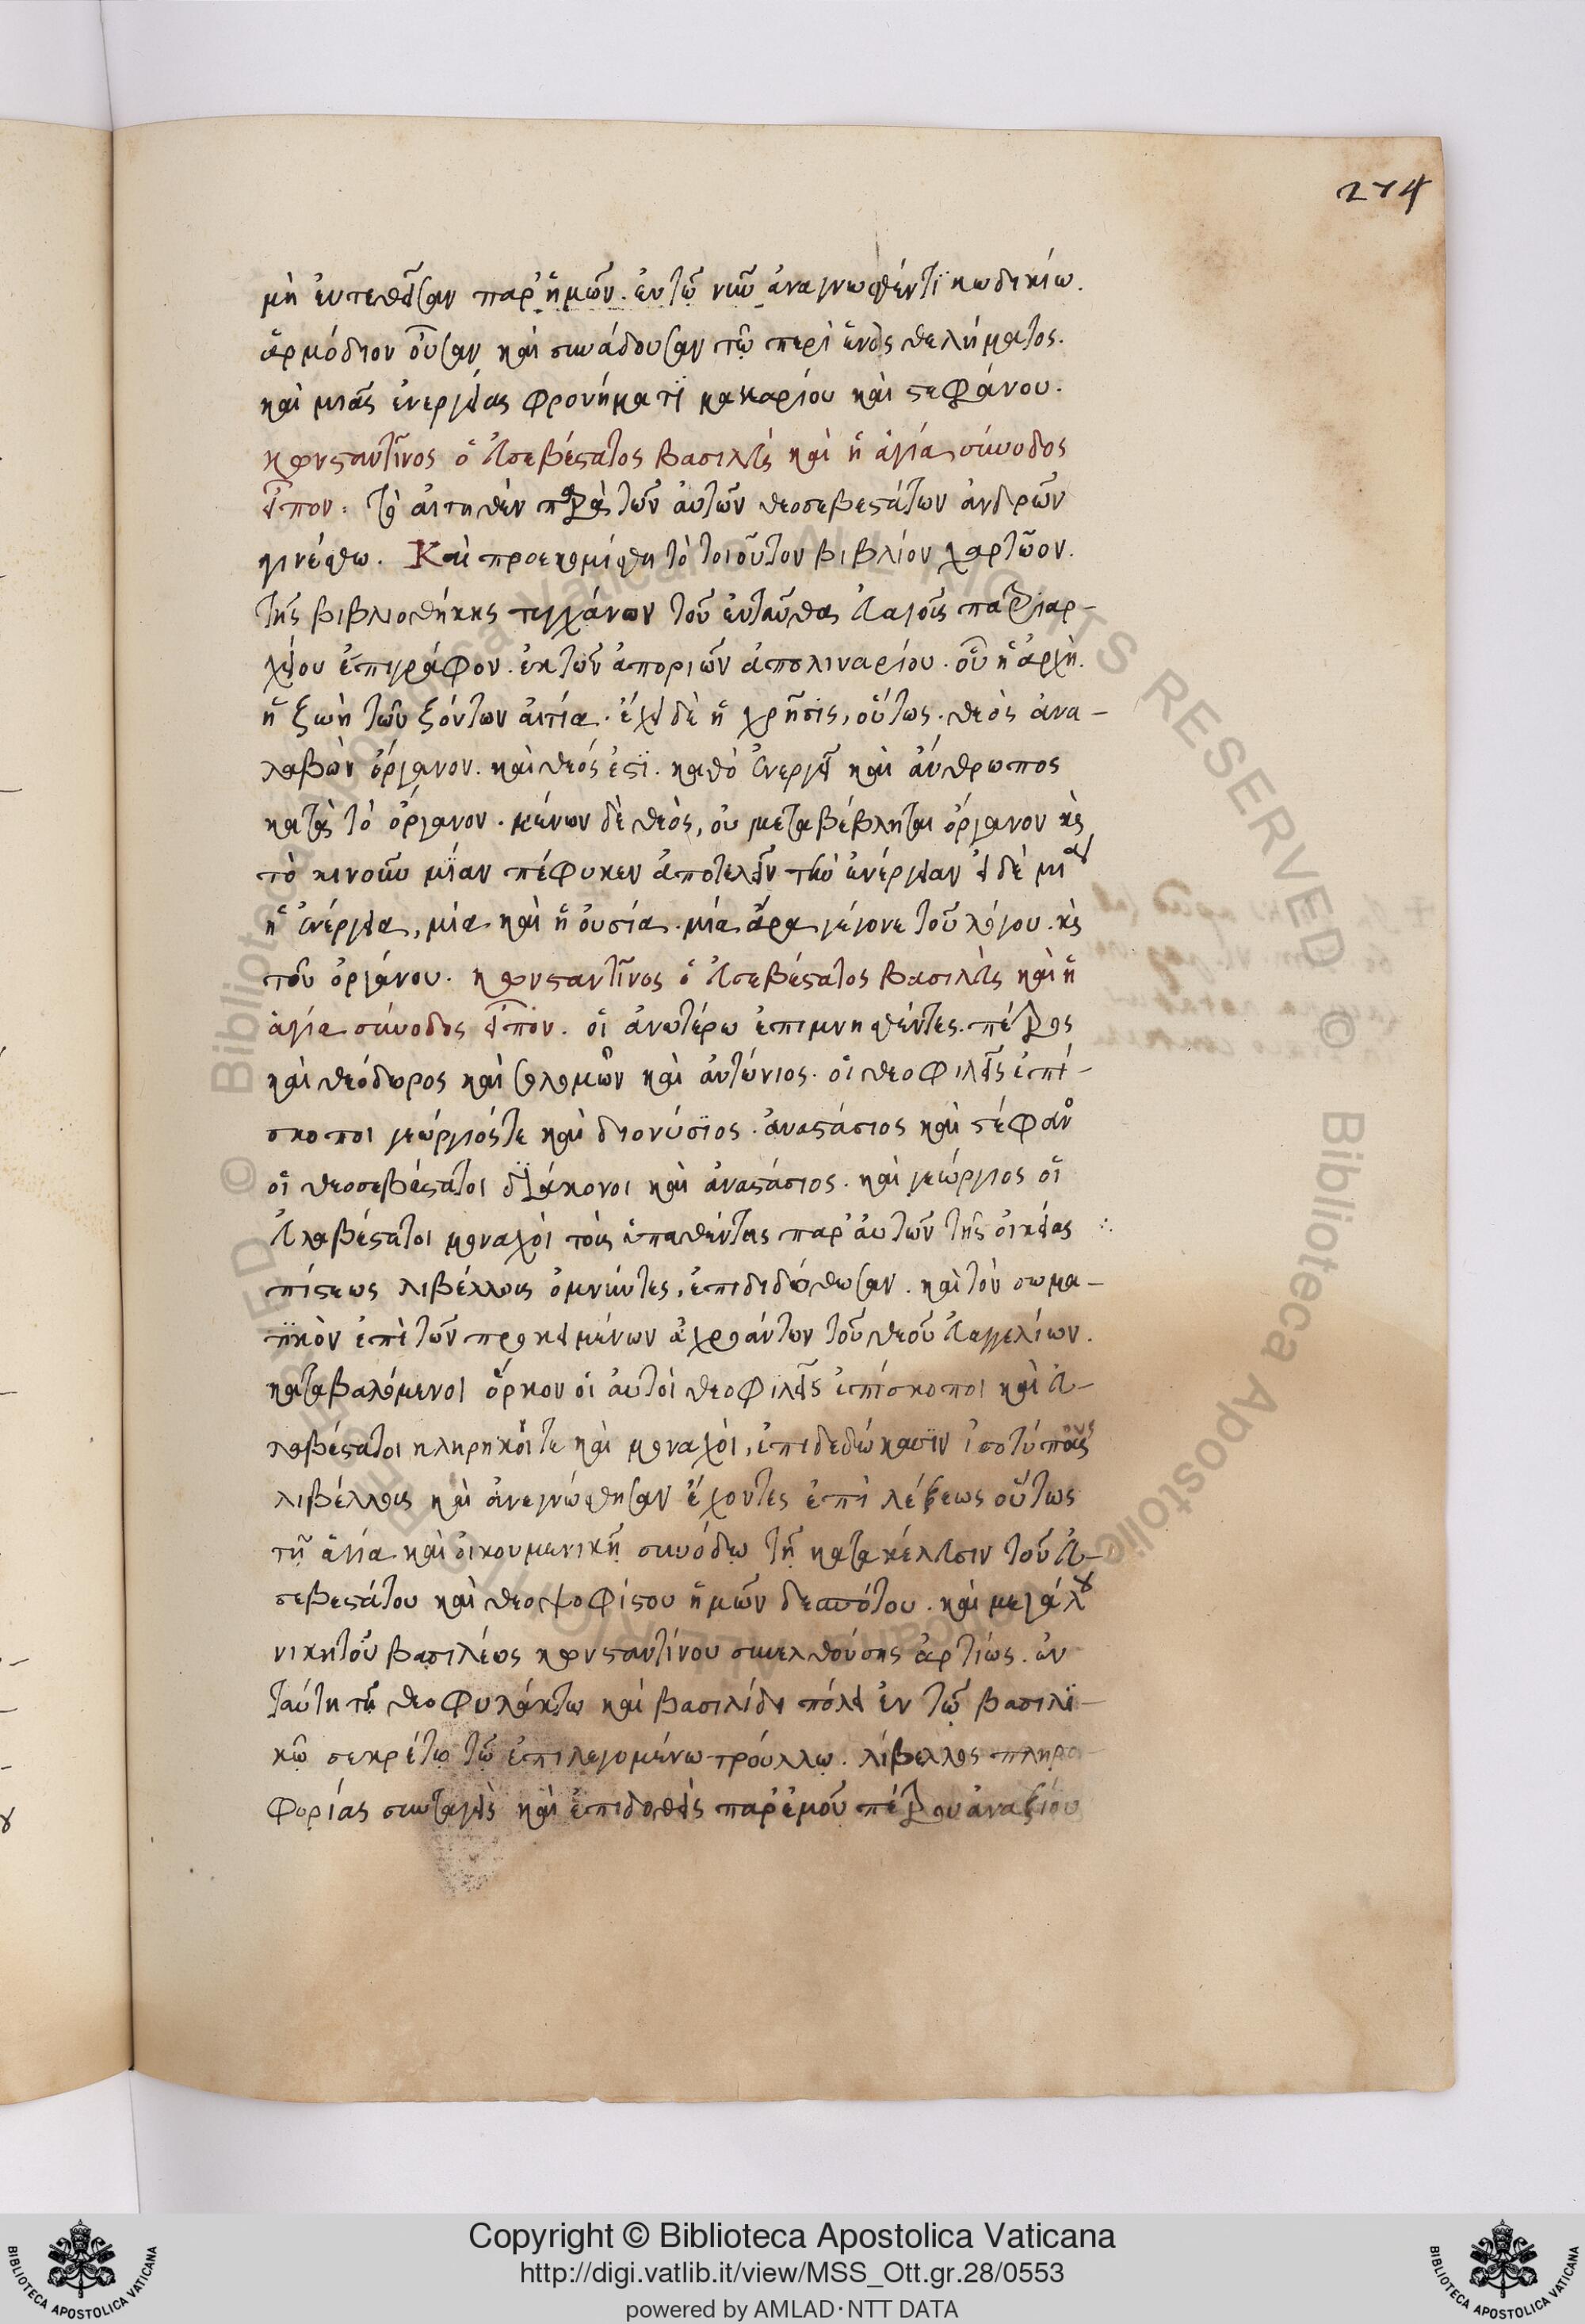 274
μὴ ἐντεθεῖσαν παρ' ἡμῶν. ἐν τῷ νῦν ἀναγνωσθέντι κωδικίω.
ἁρμόδιον οὖσαν καὶ συνάδουσαν τῷ περὶ ἑνὸς θελήματος.
καὶ μιᾶς ἐνεργείας φρονήματι μακαρίου καὶ στεφάνου.
κωνσταντῖνος ὁ εὐσεβέστατος βασιλεὺς καὶ ἡ ἁγία σύνοδος
εἶπον. τὸ αἰτηθὲν παρὰ τῶν αὐτῶν θεοσεβεστάτων ἀνδρῶν
γινέσθω. Καὶ προεκομίσθη τὸ τοιοῦτον βιβλίον χαρτῶον.
τῆς βιβλιοθήκης τυγχάνων τοῦ ἐνταῦθα εὐαγοῦς πατριαρ-
χείου ἐπιγράφον. ἐκ τῶν ἀποριῶν ἀπολιναρίου. οὗ ἡ ἀρχὴ.
ἡ ζωὴ τῶν ζόντων αἰτία. ἔχει δὲ ἡ χρῆσις, οὕτως. θεὸς ἀνα-
λαβὼν ὄργανον. καὶ θεός ἐστι. καθὸ ἐνεργεῖ καὶ ἄνθρωπος
κατὰ τὸ ὄργανον. μένων δὲ θεὸς, οὐ μεταβέβληται ὄργανον καὶ
τὸ κινοῦν μίαν πέφυκεν ἀποτελεῖν τὴν ἐνέργειαν εἰ δὲ μία
ἡ ἐνέργεια, μία καὶ ἡ οὐσία. μία ἄρα γέγονε τοῦ λόγου. καὶ
τοῦ ὀργάνου. κωνσταντῖνος ὁ εὐσεβέστατος βασιλεὺς καὶ ἡ
ἁγία σύνοδος εἶπον. οἱ ἀνωτέρω ἐπιμνησθέντες. πέτρος
καὶ θεόδωρος καὶ σολομὼν καὶ ἀντώνιος. οἱ θεοφιλεῖς ἐπί-
σκοποι γεώργιός τε καὶ διονύσιος. ἀναστάσιος καὶ στέφανο
οἱ θεοσεβέστατοι διάκονοι καὶ ἀναστάσιος. καὶ γεώργιος οἱ
εὐλαβέστατοι μοναχοὶ τοὺς παρ' αὐτῶν τῆς οἰκείας
πίστεως λιβέλλους ὀμνύντες, ἐπιδιδόσθωσαν. καὶ τὸν σωμα-
τικὸν ἐπὶ τῶν προκειμένων ἀχράντων τοῦ θεοῦ εὐαγγελίων.
καταβαλόμενοι ὅρκον οἱ αὐτοὶ θεοφιλεῖς ἐπίσκοποι καὶ εὐ-
λαβέστατοι κληρικοί τε καὶ μοναχοὶ, ἐπιδεδώκασιν ἰσοτύπους
λιβέλλους καὶ ἀνεγνώσθησαν ἔχοντες ἐπὶ λέξεως οὕτως
τῇ ἁγία καὶ οἰκουμενικῇ συνόδῳ τῇ κατα κέλευσιν τοῦ εὐ-
σεβεστάτου καὶ θεοψοφίστου ἡμῶν δεσπότου. καὶ μεγάλου
νικητοῦ βασιλέως κωνσταντίνου συνελθούσης ἀρτίως. ἐν
ταύτη τῇ θεοφυλάκτω καὶ βασιλίδι πόλει ἐν τῷ βασιλι-
κῷ σεκρέτῳ τῷ ἐπιλεγομένω τρούλλῳ. λίβελλος πληρο-
φορίας συνταγεὶς καὶ ἐπιδοθεὶς παρ' ἐμοῦ πέτρου ἀναξίου
Copyright © Biblioteca Apostolica Vaticana
http://digi.vatlib.it/view/MSS_Ott.gr.28/0553
powered by AMLAD·NTT DATA